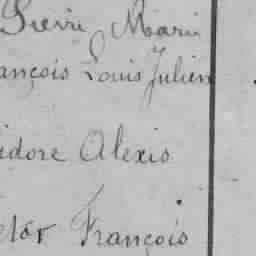 Pierre Marie
ançois Louis Julien
idore Alexis
ctor François